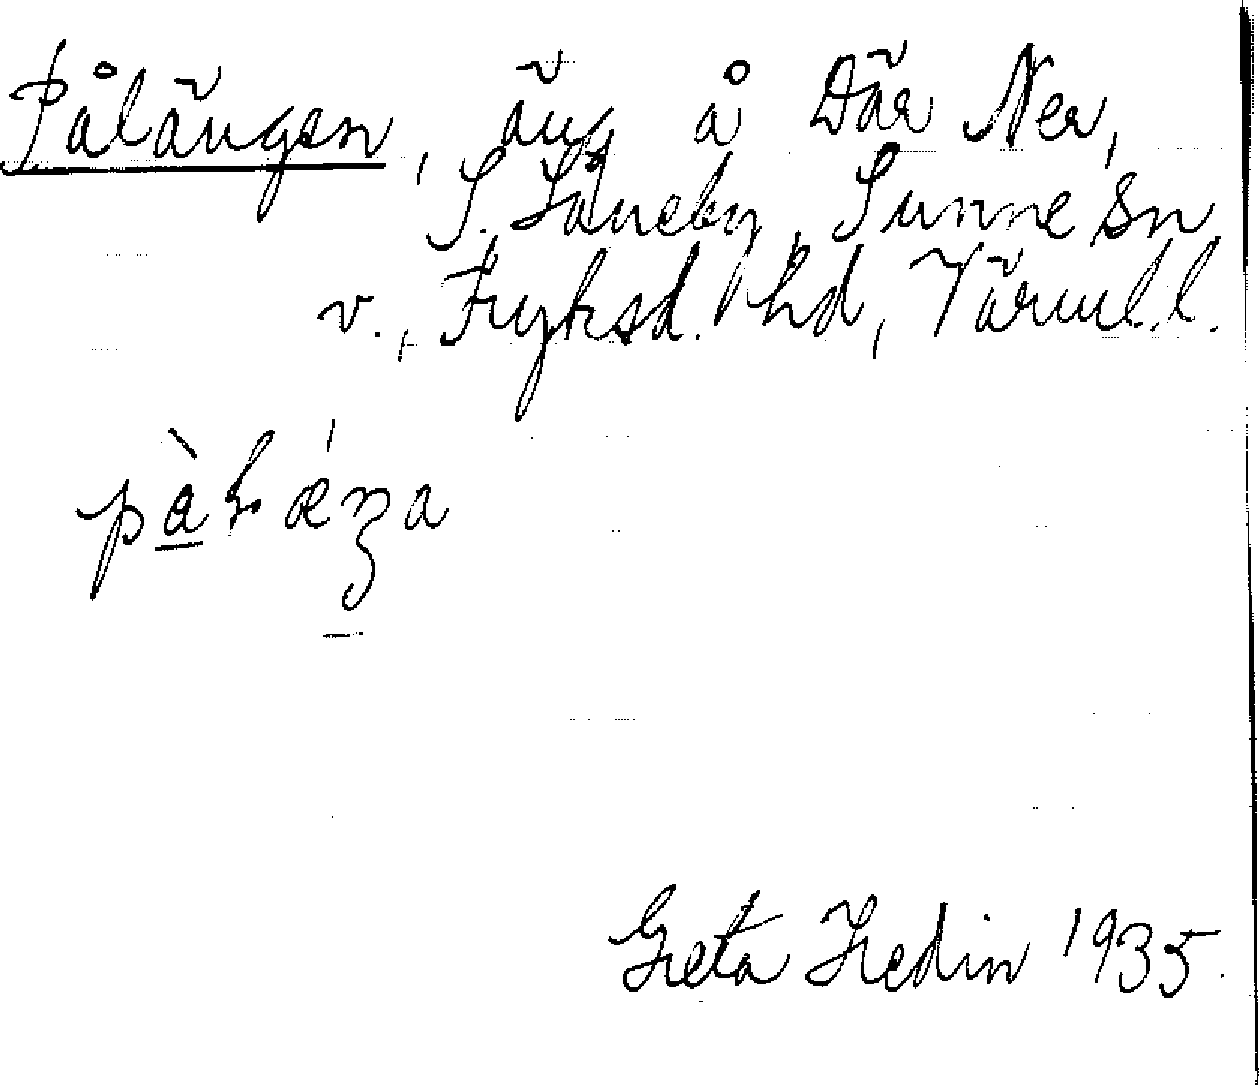 Pålängen, äng å Där Ner,
S. Låneby, Sunne sn
v., Fryksd. hd, Värml.l.
Greta Hedin 1935.